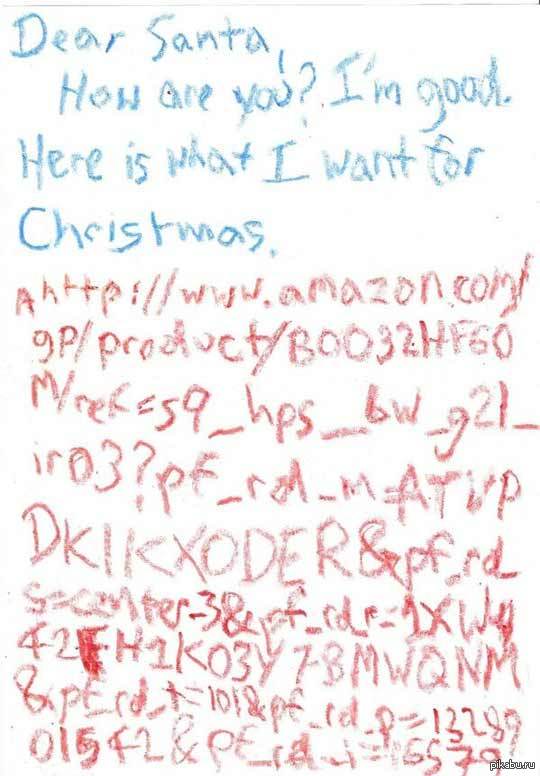 Dear Santa,
How are you? I'm good.
Here is what I want for
Christmas.
A http://www.amazon.com/
gp/product/B0032HF60
M/ref=s9_hps_bw_g21_
ir03?pf_rd_m=ATVP
DKIKX0DER&pf_rd_
s=center-3&pf_rd_r=1XWY
42FH1K03Y78MWQNM
&pf_rd_t=101&pf_rd_p=13289
01542&pf_rd_i=165579
pikabu.ru